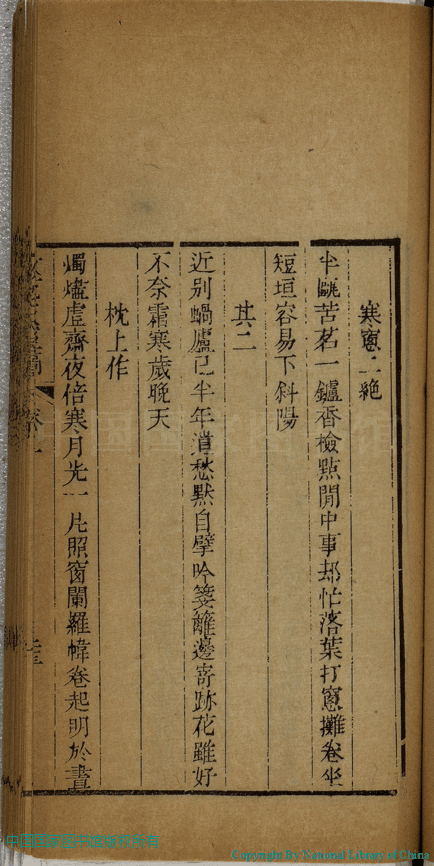 寒窻二絶
半甌苦茗一鑪香檢點閒中事却忙落葉打窻攤卷坐
短垣容易下斜陽
其二
近别蝸廬已半年遣愁默自擘吟箋籬邊寄跡花雖好
不奈霜寒歲晚天
枕上作
燭燼虛齋夜倍寒月光一片照窗闌羅幃卷起明於晝
中国国家图书馆
Copyright By National Library of China